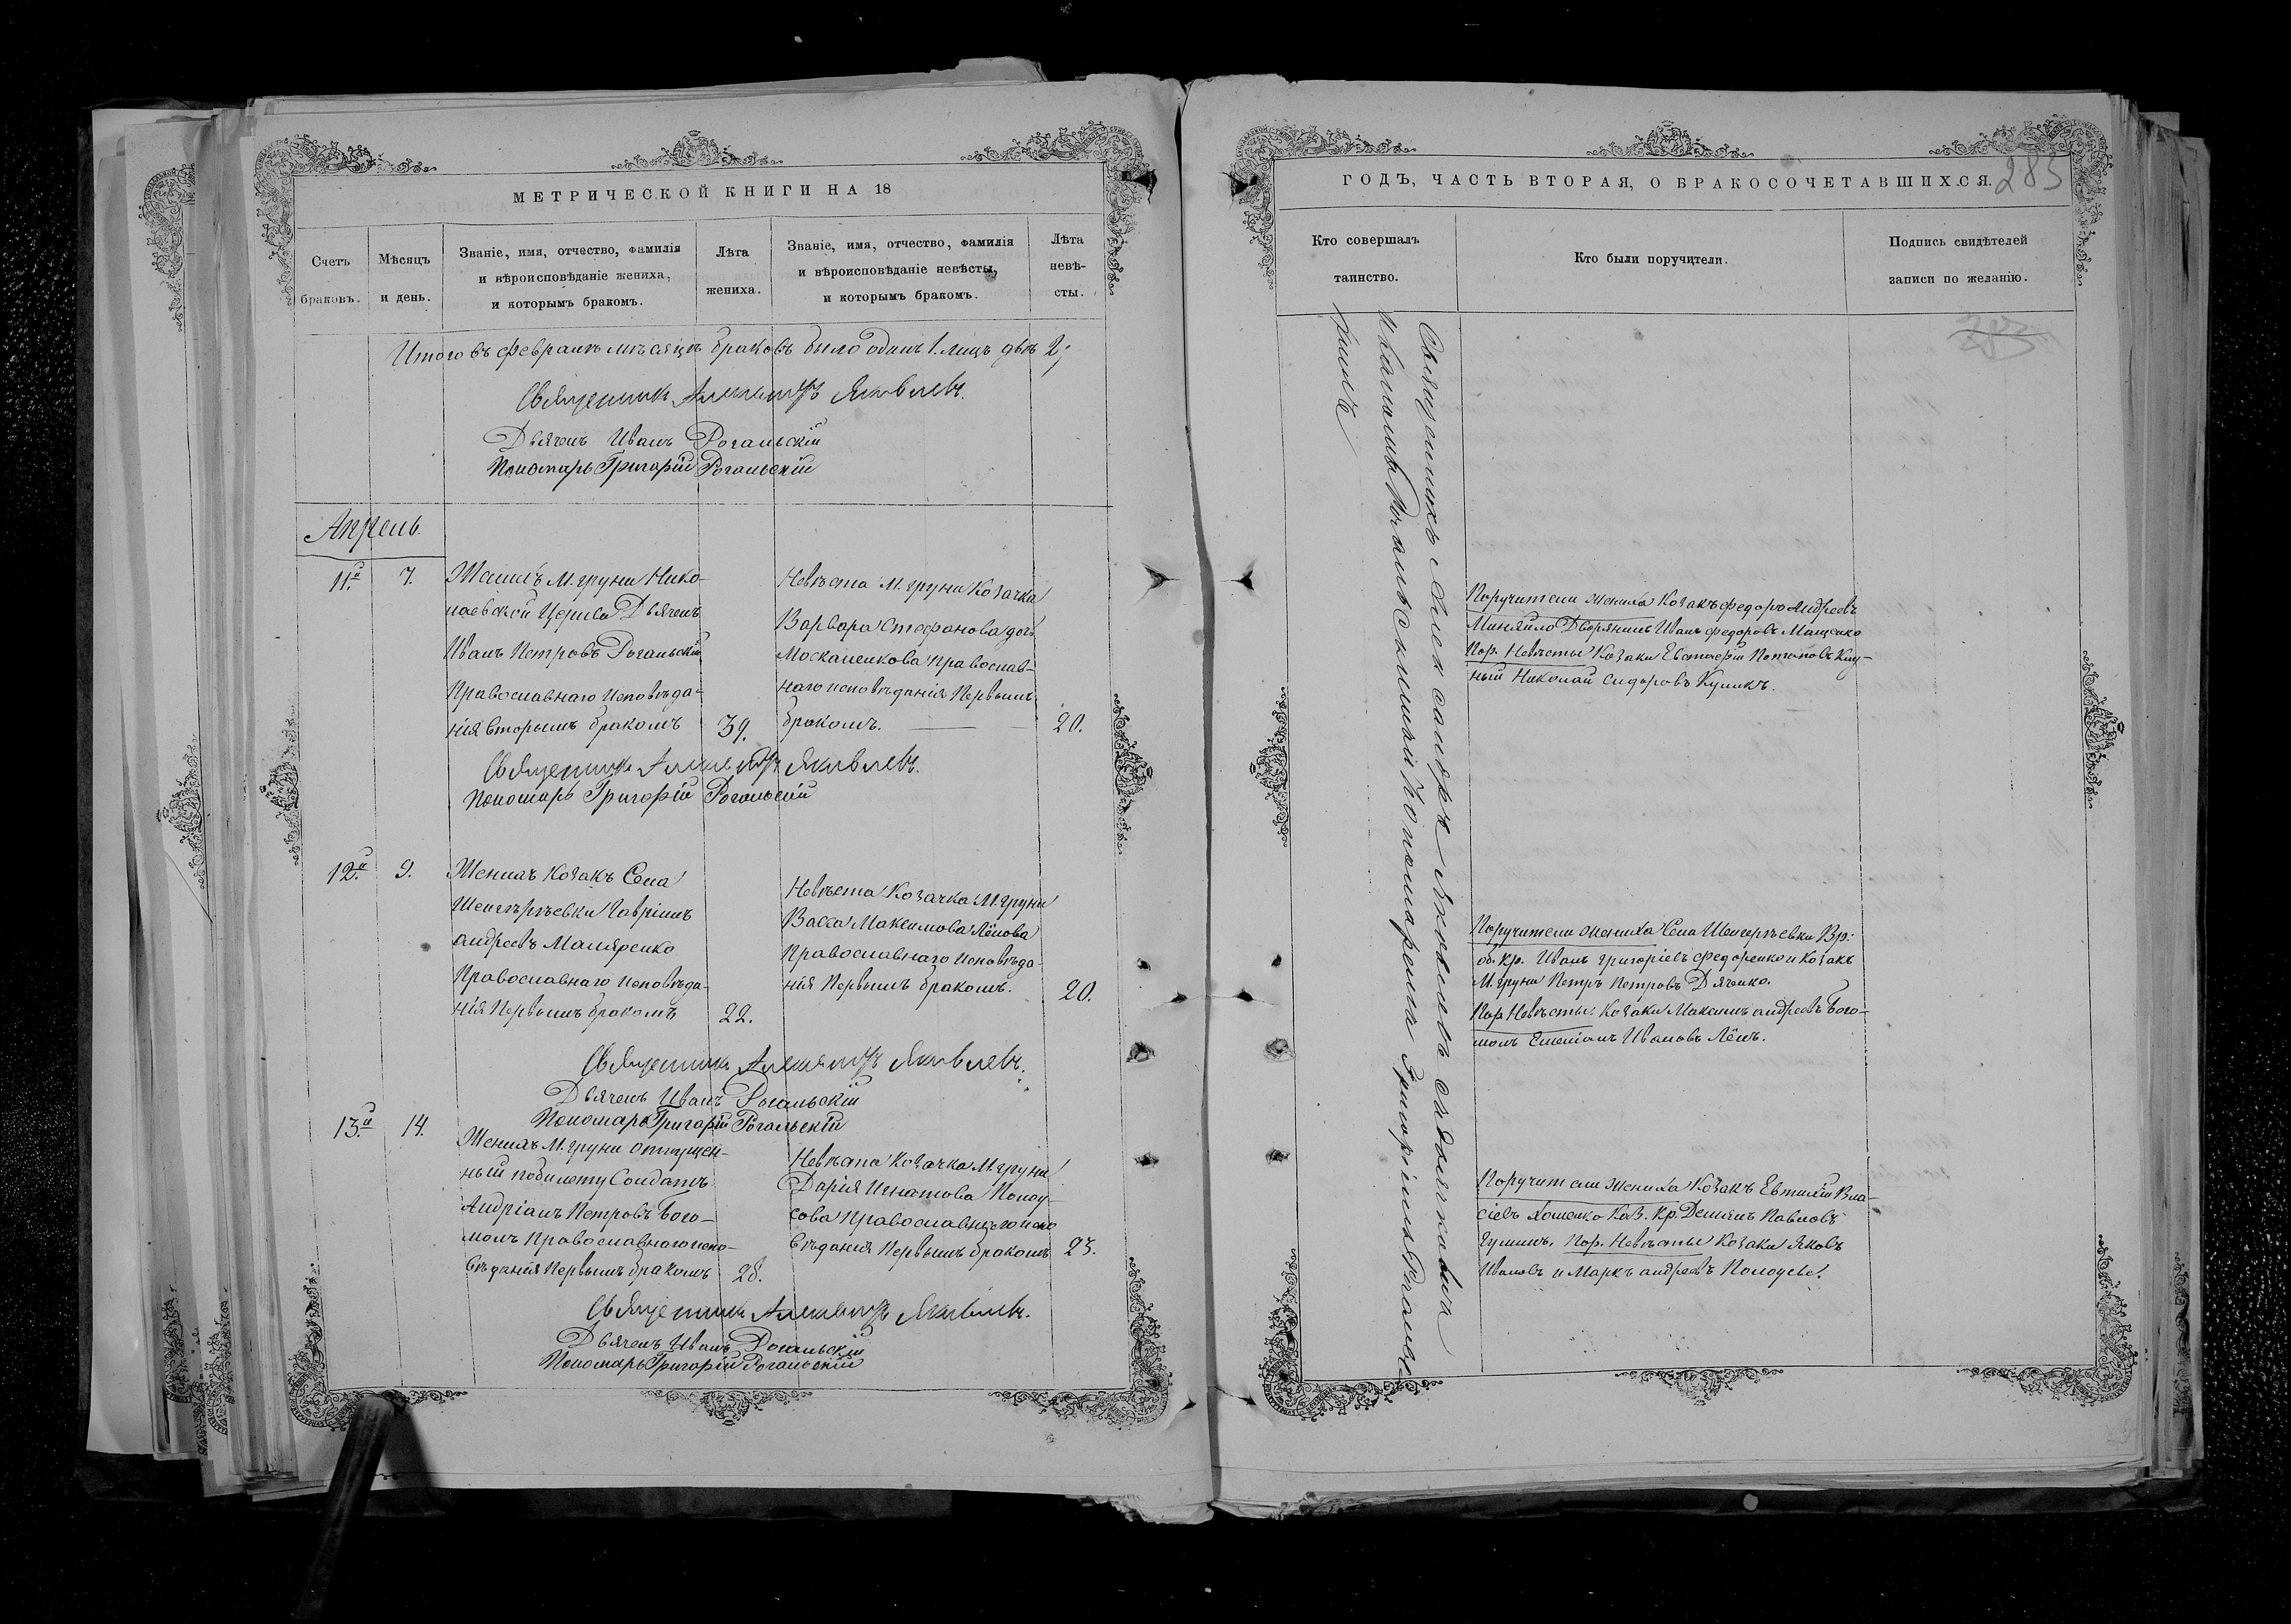 МЕТРИЧЕСКОЙ КНИГИ НА 18
Счетъ браковъ.
Мѣсяцъ и день.
Званіе, имя, отчество, фамилія
и вѣроисповѣданіе жениха,
и которымъ бракомъ.
Лѣта
жениха.
Званіе, имя, отчество, фамилія
и вѣроисповѣданіе невѣсты,
и которымъ бракомъ.
Лѣта
невѣ-
сты.
Итого въ февралѣ мѣсяцѣ браковъ было одинъ 1. лицъ двѣ 2;
Священникъ Александръ Яковлевъ.
Дьячекъ Иванъ Рогальскій
Пономарь Григорій Рогальскій
Апрель.
11.й
7.
Женихъ М. Груни Нико-
лаевской Церкви Дьячекъ
Иванъ Петровъ Рогальскій
Православнаго исповѣда-
нія вторымъ бракомъ
39.
Невѣста М. Груни Козачка
Варвара Стефанова дочь
Москаленкова православ-
наго исповѣданія Первымъ
бракомъ.
20.
Священникъ Александръ Яковлевъ.
Пономарь Григорій Рогальскій
12.й
9.
Женихъ Козакъ Села
Гавріилъ
андреевъ Маляренко
Православнаго исповѣда-
нія Первымъ бракомъ
22.
Невѣста Козачка М. Груни
Васса Максимова Лёнова
Православнаго исповѣда-
нія Первымъ бракомъ.
20.
Священникъ Александръ Яковлевъ.
Дьячекъ Иванъ Рогальскій
Пономарь Григорій Рогальскій
13.й
14.
Женихъ М. Груни отпущен-
ный по билету Солдатъ
Андріанъ Петровъ Бого-
молъ Православнаго испо-
вѣданія Первымъ бракомъ
28.
Невѣста Козачка М. Груни
Дарія Игнатова Колоу-
сова Православнаго испо
вѣданія Первымъ бракомъ
23.
Священникъ Александръ Яковлевъ.
Дьячекъ Иванъ Рогальскій
Пономарь Григорій Рогальскій
ГОДЪ, ЧАСТЬ ВТОРАЯ, О БРАКОСОЧЕТАВШИХСЯ.
283
Кто совершалъ
таинство.
Кто были поручители.
Подпись свидѣтелей
записи по желанію.
283
Священникъ Александръ Яковлевъ съ дьячкомъ
Иваномъ Рогальскимъ и Пономаремъ Григоріемъ Рогальс
кимъ
Поручители жениха Козакъ федоръ Андреевъ
Миняйло Дворянинъ Иванъ федоровъ Мащенко
Пор. Невѣсты Козаки Евстафій Потаповъ
Николай Сидоровъ Куликъ.
Поручители жениха Села Вр.
об. кр. Иванъ григоріевъ федоренко и Козакъ
М. Груни Петръ Петровъ Дяченко.
Пор. Невѣсты: Козаки Максимъ андреевъ Бого-
молъ Иванъ Лёнъ.
Поручители жениха Козакъ Евтихій Вла-
сіевъ Каз. Кр. Демянъ Павловъ
Пор. Невѣсты Козаки Яковъ
Ивановъ и Маркъ андреевъ